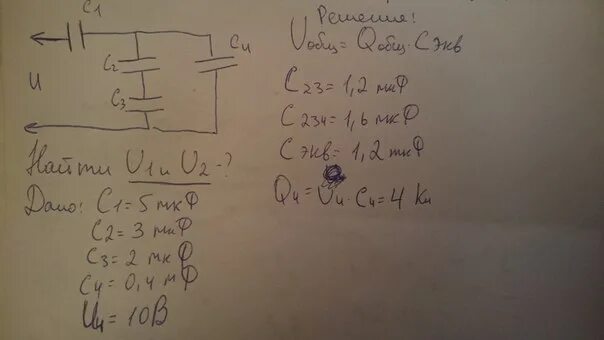 C1
C2
C3
C4
U
Найти U1 и U2 - ?
Дано: C1 = 5 мкФ
C2 = 3 мкФ
C3 = 2 мкФ
C4 = 0,4 мФ
U4 = 10В
Решение:
Uобщ = Qобщ · Cэкв
C23 = 1,2 мкФ
C234 = 1,6 мкФ
Cэкв = 1,2 мкФ
Q4 = U4 · C4 = 4 Кл